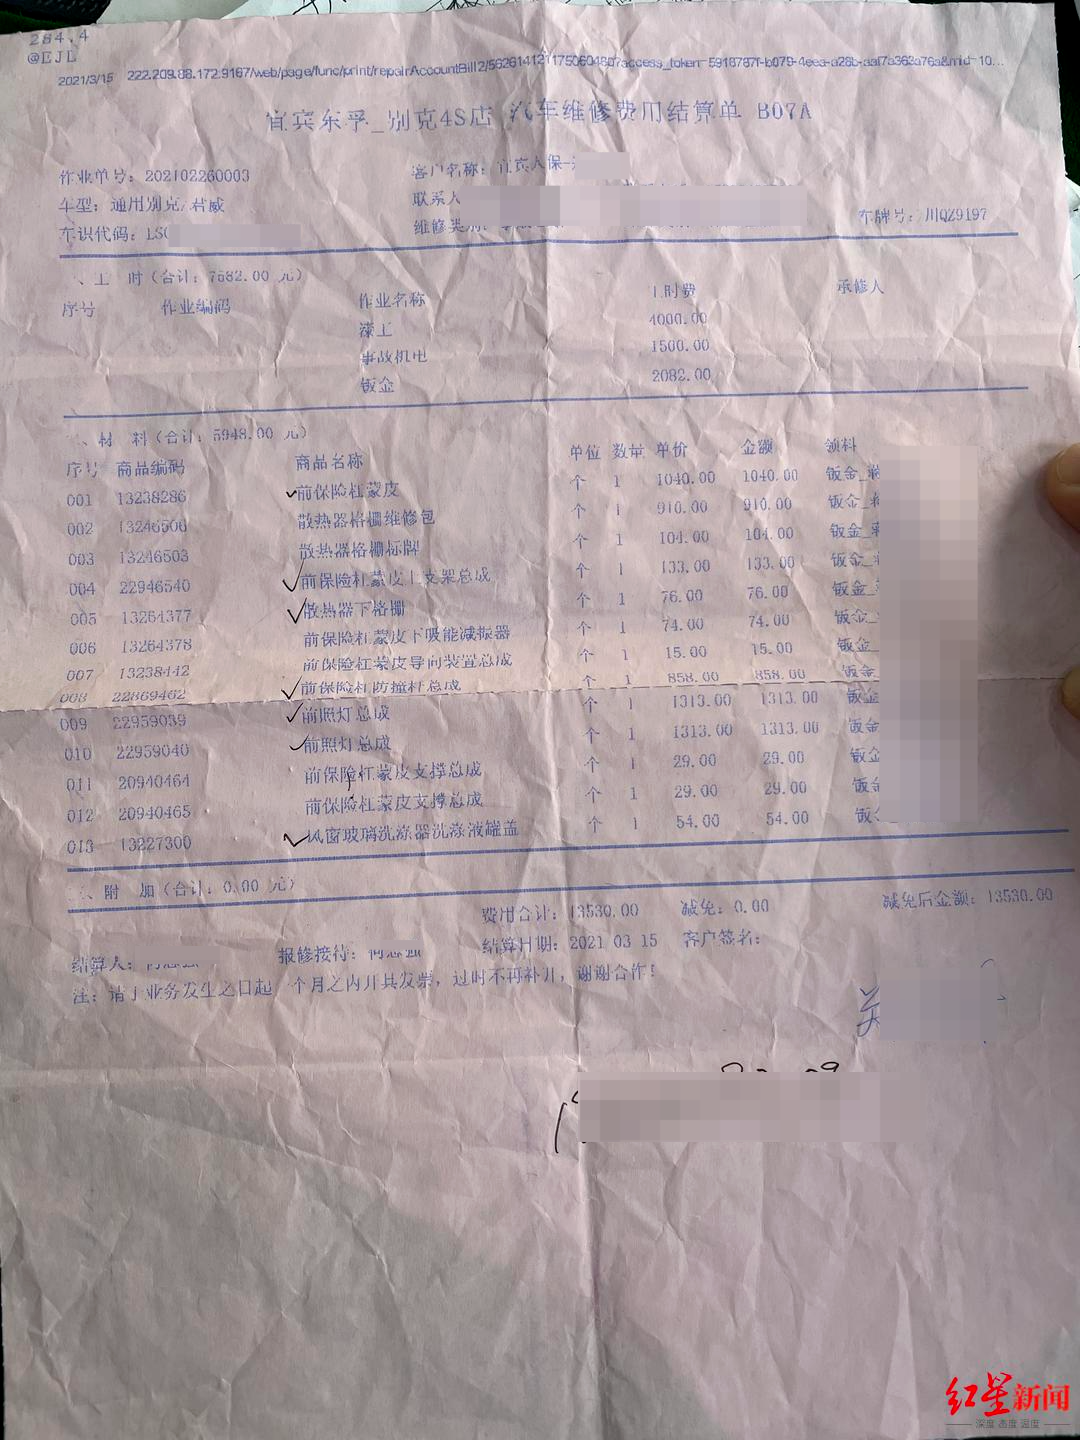 284.4
@EJL
2021/3/15 222.209.88.172:9167/web/page/func/print/repairAccountBill2/
宜宾东孚_别克4S店 汽车维修费用结算单 B07A
作业单号：202102260003 客户名称：宜宾人保-
车型：通用别克/君威 联系人
车识代码：LSG 维修类别： 车牌号：川QZ9197
一、工 时（合计：7582.00 元）
序号 作业编码 作业名称 工时费 承修人
漆工 4000.00
事故机电 1500.00
钣金 2082.00
二、材 料（合计：5948.00 元）
序号 商品编码 商品名称 单位 数量 单价 金额 领料
001 13238286 前保险杠蒙皮 个 1 1040.00 1040.00 钣金_
002 13246506 散热器格栅维修包 个 1 910.00 910.00 钣金_
003 13246503 散热器格栅标牌 个 1 104.00 104.00 钣金_
004 22946540 前保险杠蒙皮上支架总成 个 1 133.00 133.00 钣金_
005 13264377 散热器下格栅 个 1 76.00 76.00 钣金_
006 13264378 前保险杠蒙皮下吸能减振器 个 1 74.00 74.00 钣金_
007 13238442 前保险杠蒙皮导向装置总成 个 1 15.00 15.00 钣金_
008 22869462 前保险杠防撞杆总成 个 1 858.00 858.00 钣金_
009 22959039 前照灯总成 个 1 1313.00 1313.00 钣金
010 22959040 前照灯总成 个 1 1313.00 1313.00 钣金
011 20940464 前保险杠蒙皮支撑总成 个 1 29.00 29.00 钣金
012 20940465 前保险杠蒙皮支撑总成 个 1 29.00 29.00 钣金
013 13227300 风窗玻璃洗涤器洗涤液罐盖 个 1 54.00 54.00 钣金
三、附 加（合计：0.00 元）
费用合计：13530.00 减免：0.00 减免后金额：13530.00
结算人： 报修接待： 结算日期：2021 03 15 客户签名：
注：请于业务发生之日起一个月之内开具发票，过时不再补开，谢谢合作！
红星新闻
深度 态度 温度